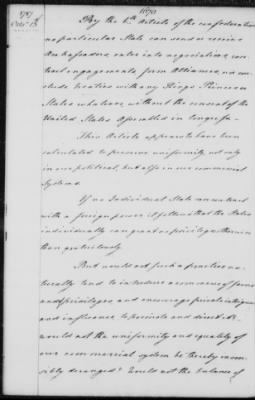 1787
Octr 13
By the 6th Article of the confederation
no particular State can send or receive
Ambassadors, enter into negotiations, con-
tract engagements, form Alliances, or con-
clude treaties with any Kings Princes or
States whatever, without the consent of the
United States assembled in Congress.—
This Article appears to have been
calculated to preserve uniformity, not only
in our political, but also in our commercial
Systems.
If no Individual State can contract
with a foreign power, it follows that the States
individually can grant no privileges therein
than gratuitously.
But would not such a practice na-
turally tend to introduce a commerce of favors
and privileges and encourage private intrigues
and influence to promote and direct it.
would not the uniformity and equality of
our commercial system be thereby insen-
sibly deranged? Would not the balance of